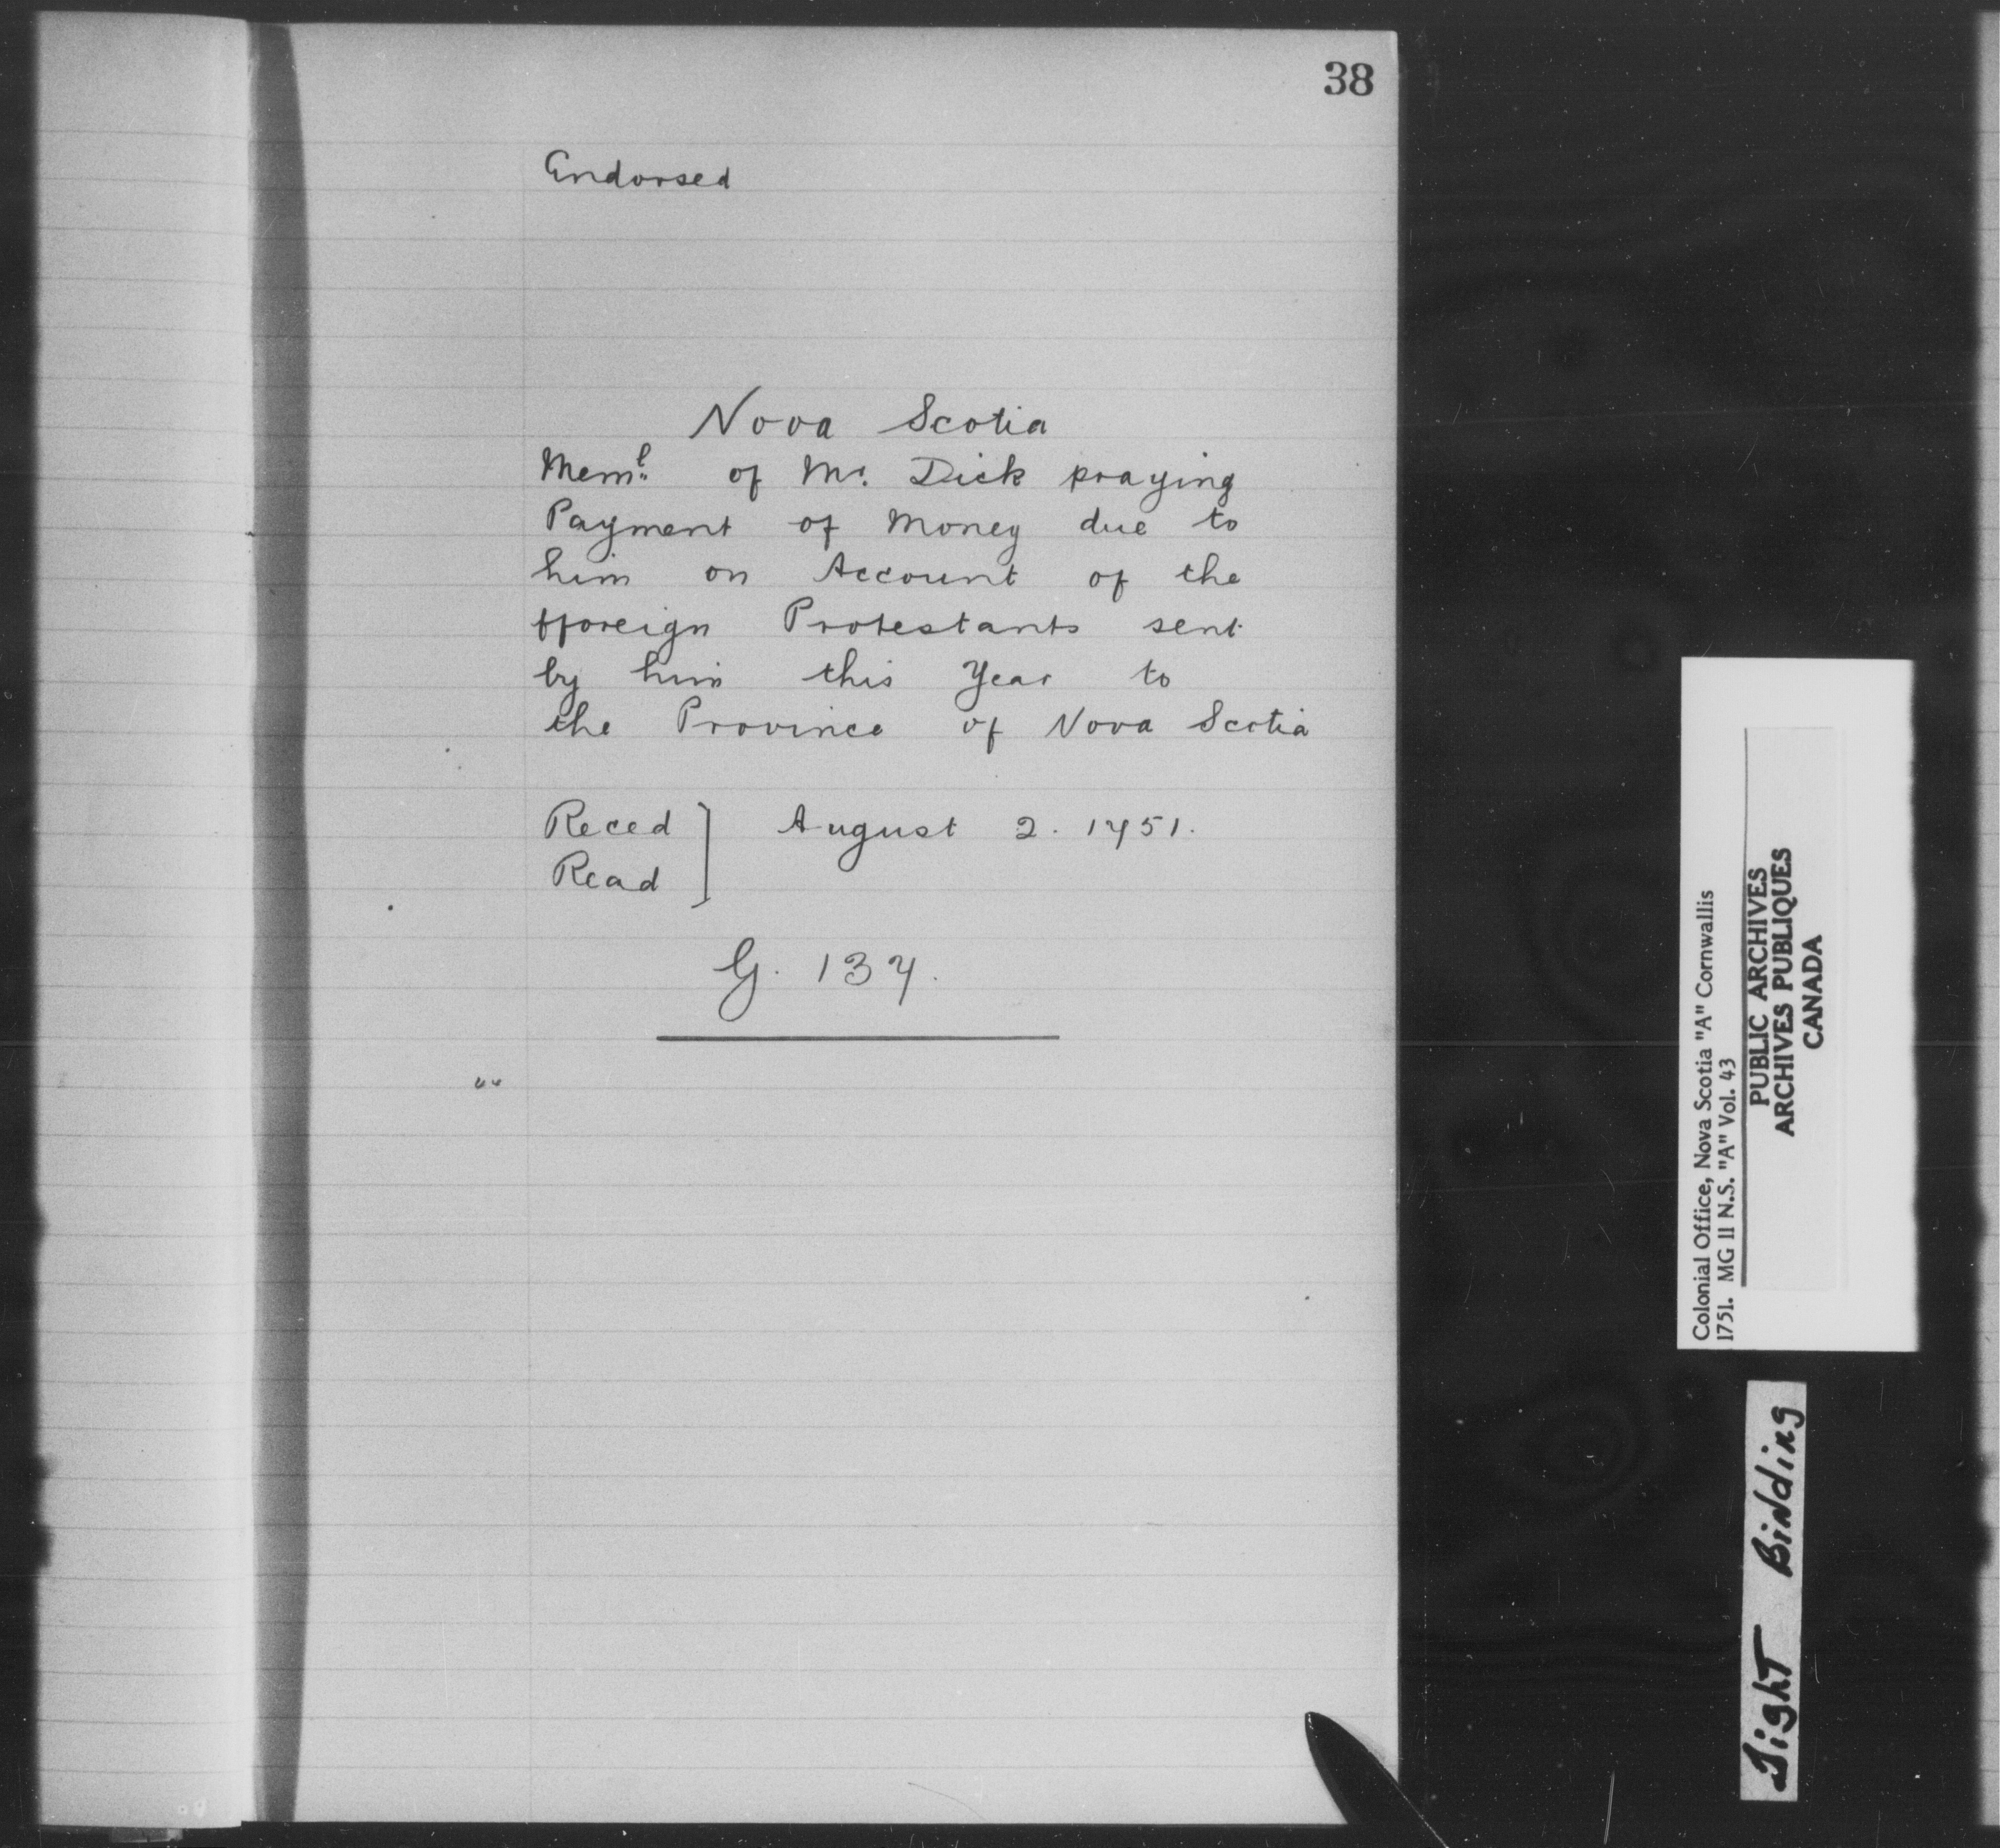 38
Endorsed
Nova Scotia
Mem.l of Mr. Dick praying
Payment of Money due to
him on Account of the
fforeign Protestants sent
by him this Year to
the Province of Nova Scotia
Reced ] August 2. 1751.
Read
G. 137.
""
Colonial Office, Nova Scotia "A" Cornwallis
1751. MG 11 N.S. "A" Vol. 43
PUBLIC ARCHIVES
ARCHIVES PUBLIQUES
CANADA
Tight Binding